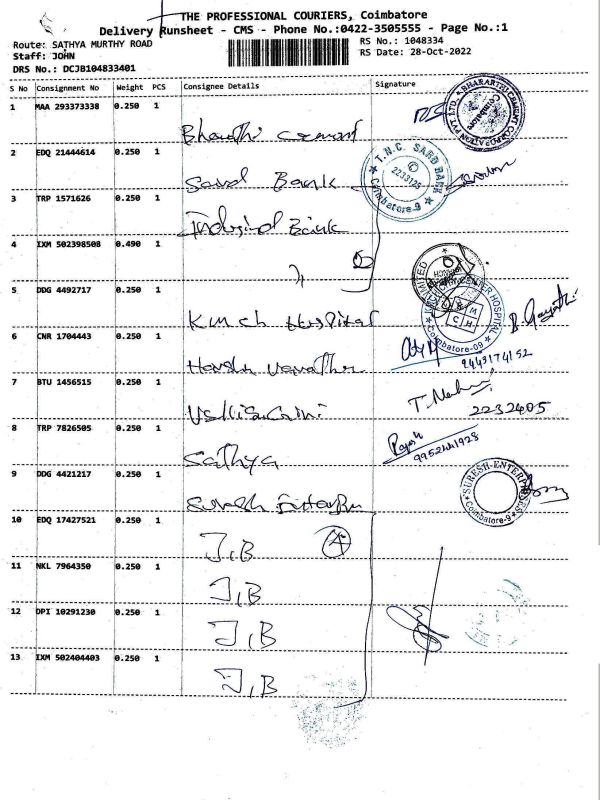 THE PROFESSIONAL COURIERS, Coimbatore
Delivery Runsheet - CMS - Phone No.:0422-3505555 - Page No.:1
Route: SATHYA MURTHY ROAD
RS No.: 1048334
Staff: JOHN
RS Date: 28-Oct-2022
DRS No.: DCJB104833401
S No Consignment No Weight PCS Consignee Details Signature
1 MAA 293373338 0.250 1
Bharathi cement
2 EDQ 21444614 0.250 1
T.N.C. SARD BANK
2233125
Coimbatore-9
Sard Bank
3 TRP 1571626 0.250 1
Indusind Bank
4 IXM 502398508 0.490 1
5 DDG 4492717 0.250 1
Kmch Hospital
KMCH
Coimbatore-09
6 CNR 1704443 0.250 1
9443174152
7 BTU 1456515 0.250 1
2232405
8 TRP 7826505 0.250 1
Rajesh
9952441928
Sathya
9 DDG 4421217 0.250 1
SURESH ENTERPRISES
Coimbatore-9
10 EDQ 17427521 0.250 1
I,B 4
11 NKL 7964350 0.250 1
I,B
12 DPI 10291230 0.250 1
I,B
13 IXM 502404403 0.250 1
I,B